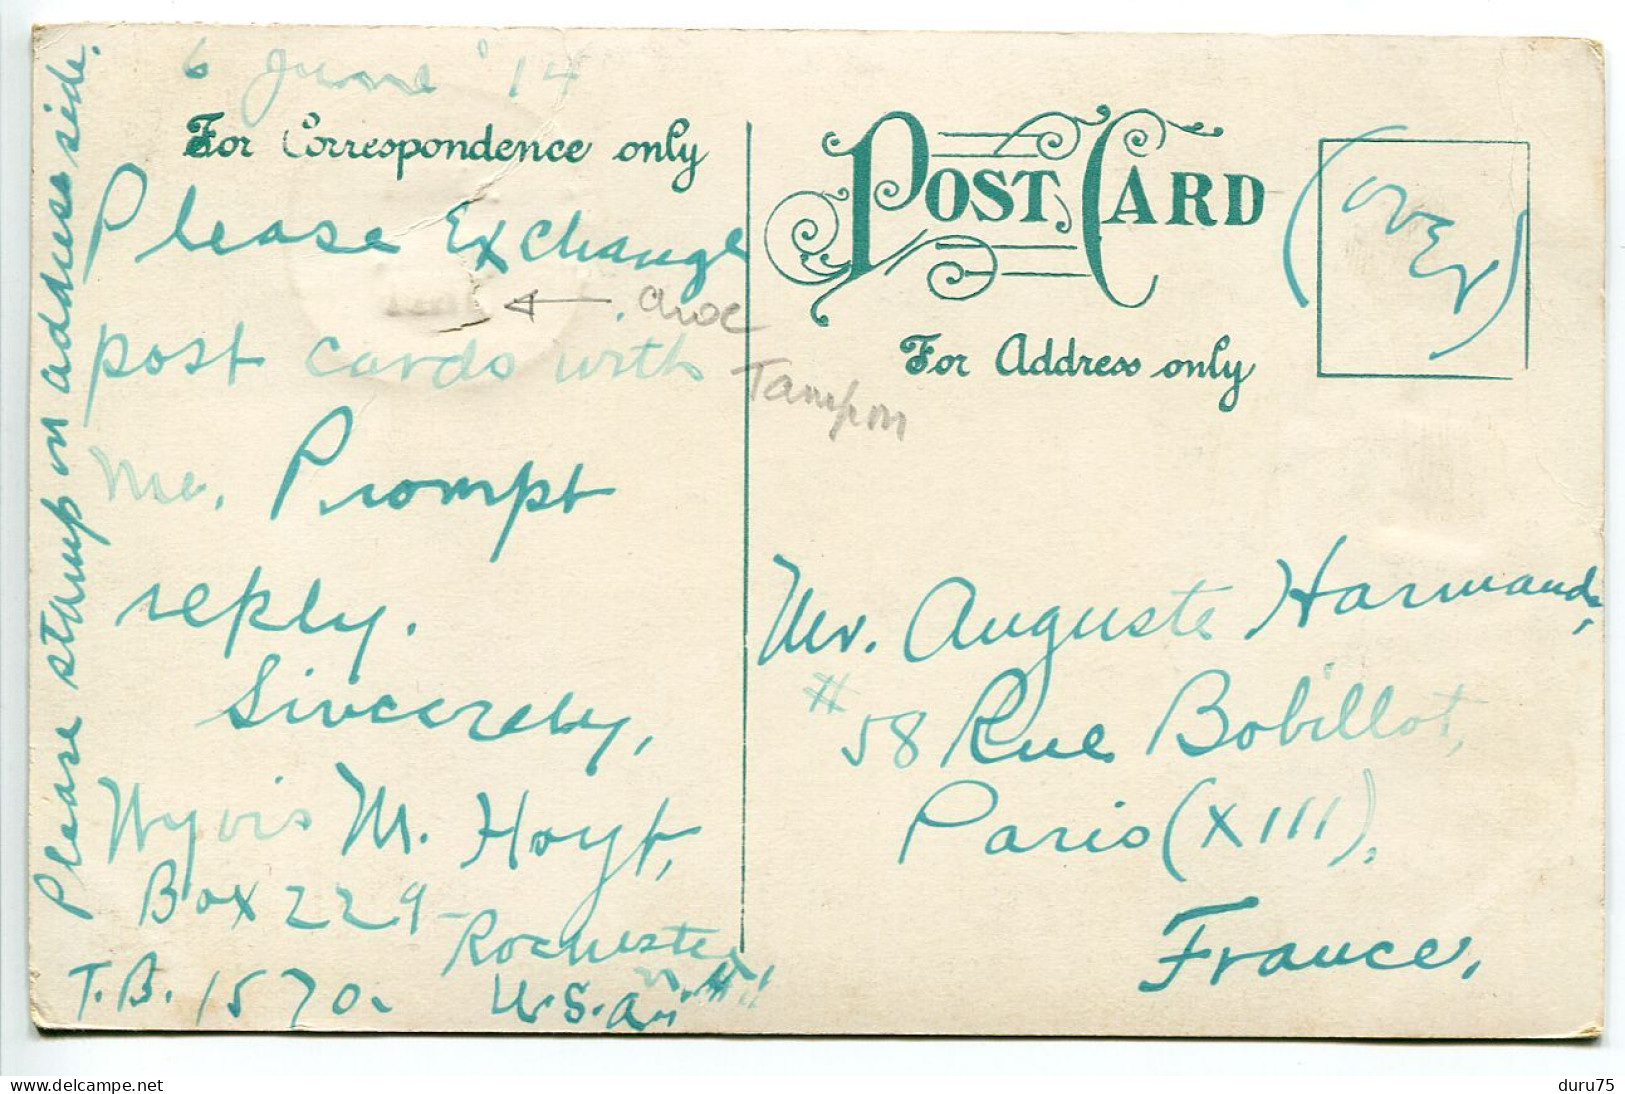 Please stamp on address side.
6 June '14
For Correspondence only
Please Exchange
post cards with
me. Prompt
reply.
Sincerely,
Wyvis M. Hoyt,
Box 229-
Rochester,
T.B. 1570.
U.S.A.
choc
Tampon
POST CARD
For Address only
(OVER)
Mr. Auguste Harmand,
# 58 Rue Bobillot,
Paris (XIII),
France.
Delcampe.net
duru75